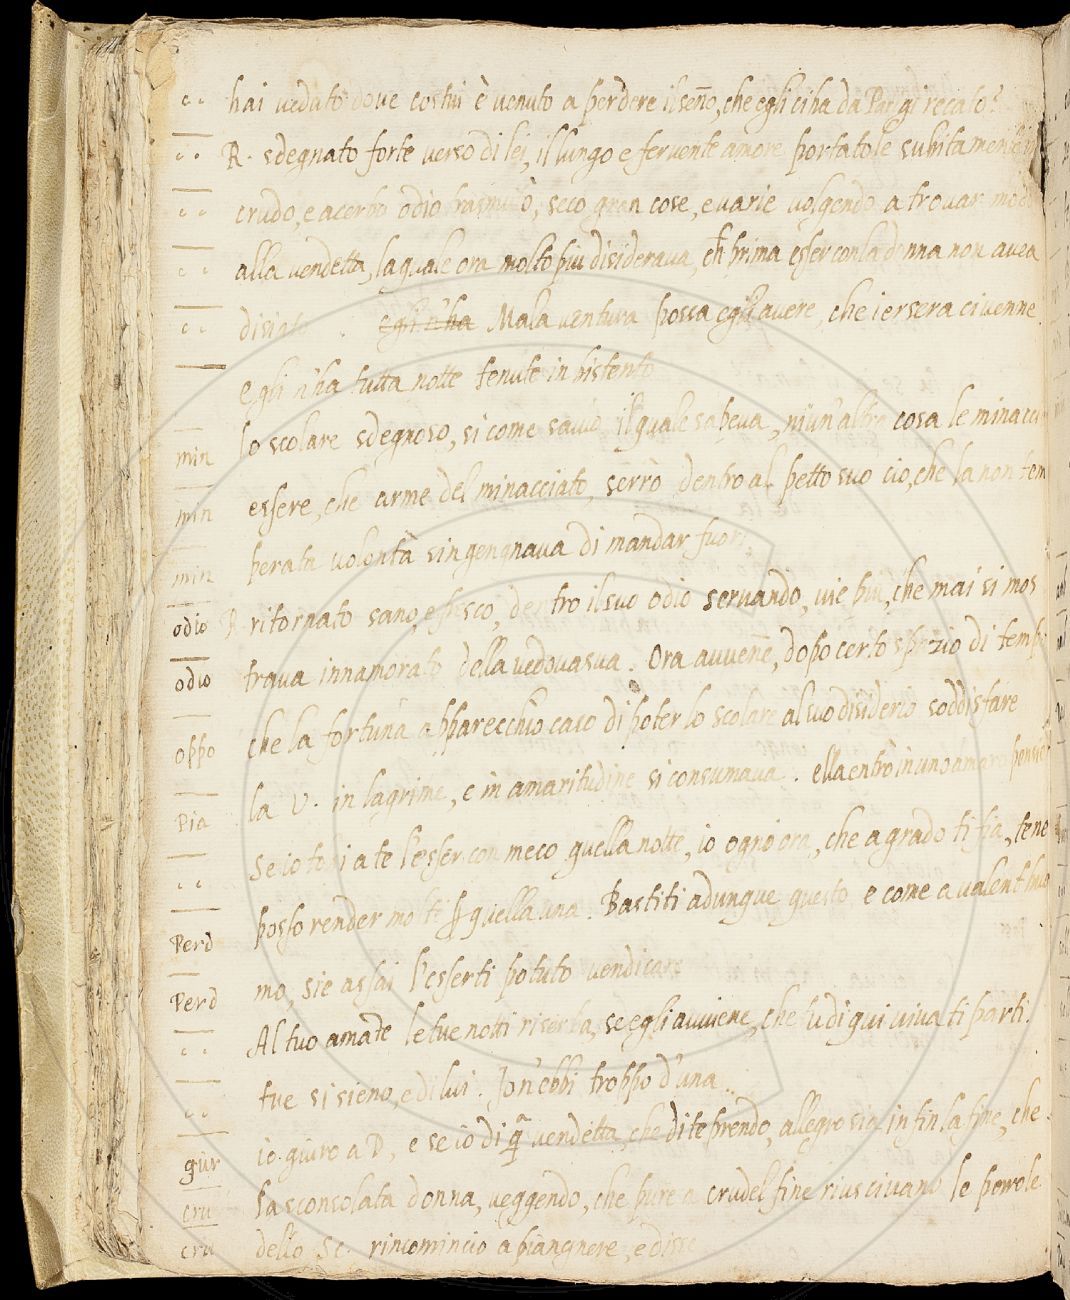 " hai veduto dove costui è venuto a perdere il seño, che egli ci ha da Parigi recato?
" R. sdegnato forte verso di lei, il lungo e fervente amore portatole subitamente in
" crudo, e acerbo odio trasmutò, seco gran cose, e varie volgendo a trovar modo
" alla vendetta, la quale ora molto piu disiderava, ch prima esser con la donna non avea
" disiato. egli n'ha Mala ventura possa egli avere, che iersera ci venne.
egli n'ha tutta notte tenute in bistento
min lo scolare sdegnoso, si come savio, il quale sapeva, niun'altra cosa le minacce
min essere, che arme del minacciato, serrò dentro al petto suo cio, che la non tem
min perata volontà s'ingengnava di mandar fuori,
odio R ritornato sano, e fresco, dentro il suo odio servando, vie piu, che mai si mos
odio trava innamorato della vedova sua. Ora avveñe, dopo certo spazio di tempo
oppo che la fortuna apparecchiò caso di poter lo scolare al suo disiderio soddisfare
Pia la V. in lagrime, e in amaritudine si consumava. ella entrò in uno amaro pensier
" se io tolsi a te l'esser con meco quella notte, io ogni ora, che a grado ti fia, tene
Perd posso render molte p quella una. Bastiti adunque questo e come a valent'huo
Perd mo, sie assai l'esserti potuto vendicare
" Al tuo amate le tue notti riserba, se egli avviene, che tu di qui viva ti parti.
" tue si sieno, e di lui. Io n'ebbi troppo d'una.
giur io giuro a D, e se io di qa vendetta, che di te prendo, allegro sia infin la fine, che
cru La sconsolata donna, veggendo, che pure a crudel fine riuscivano le parole
cru dello Sc. rincominciò a piangnere, e disse